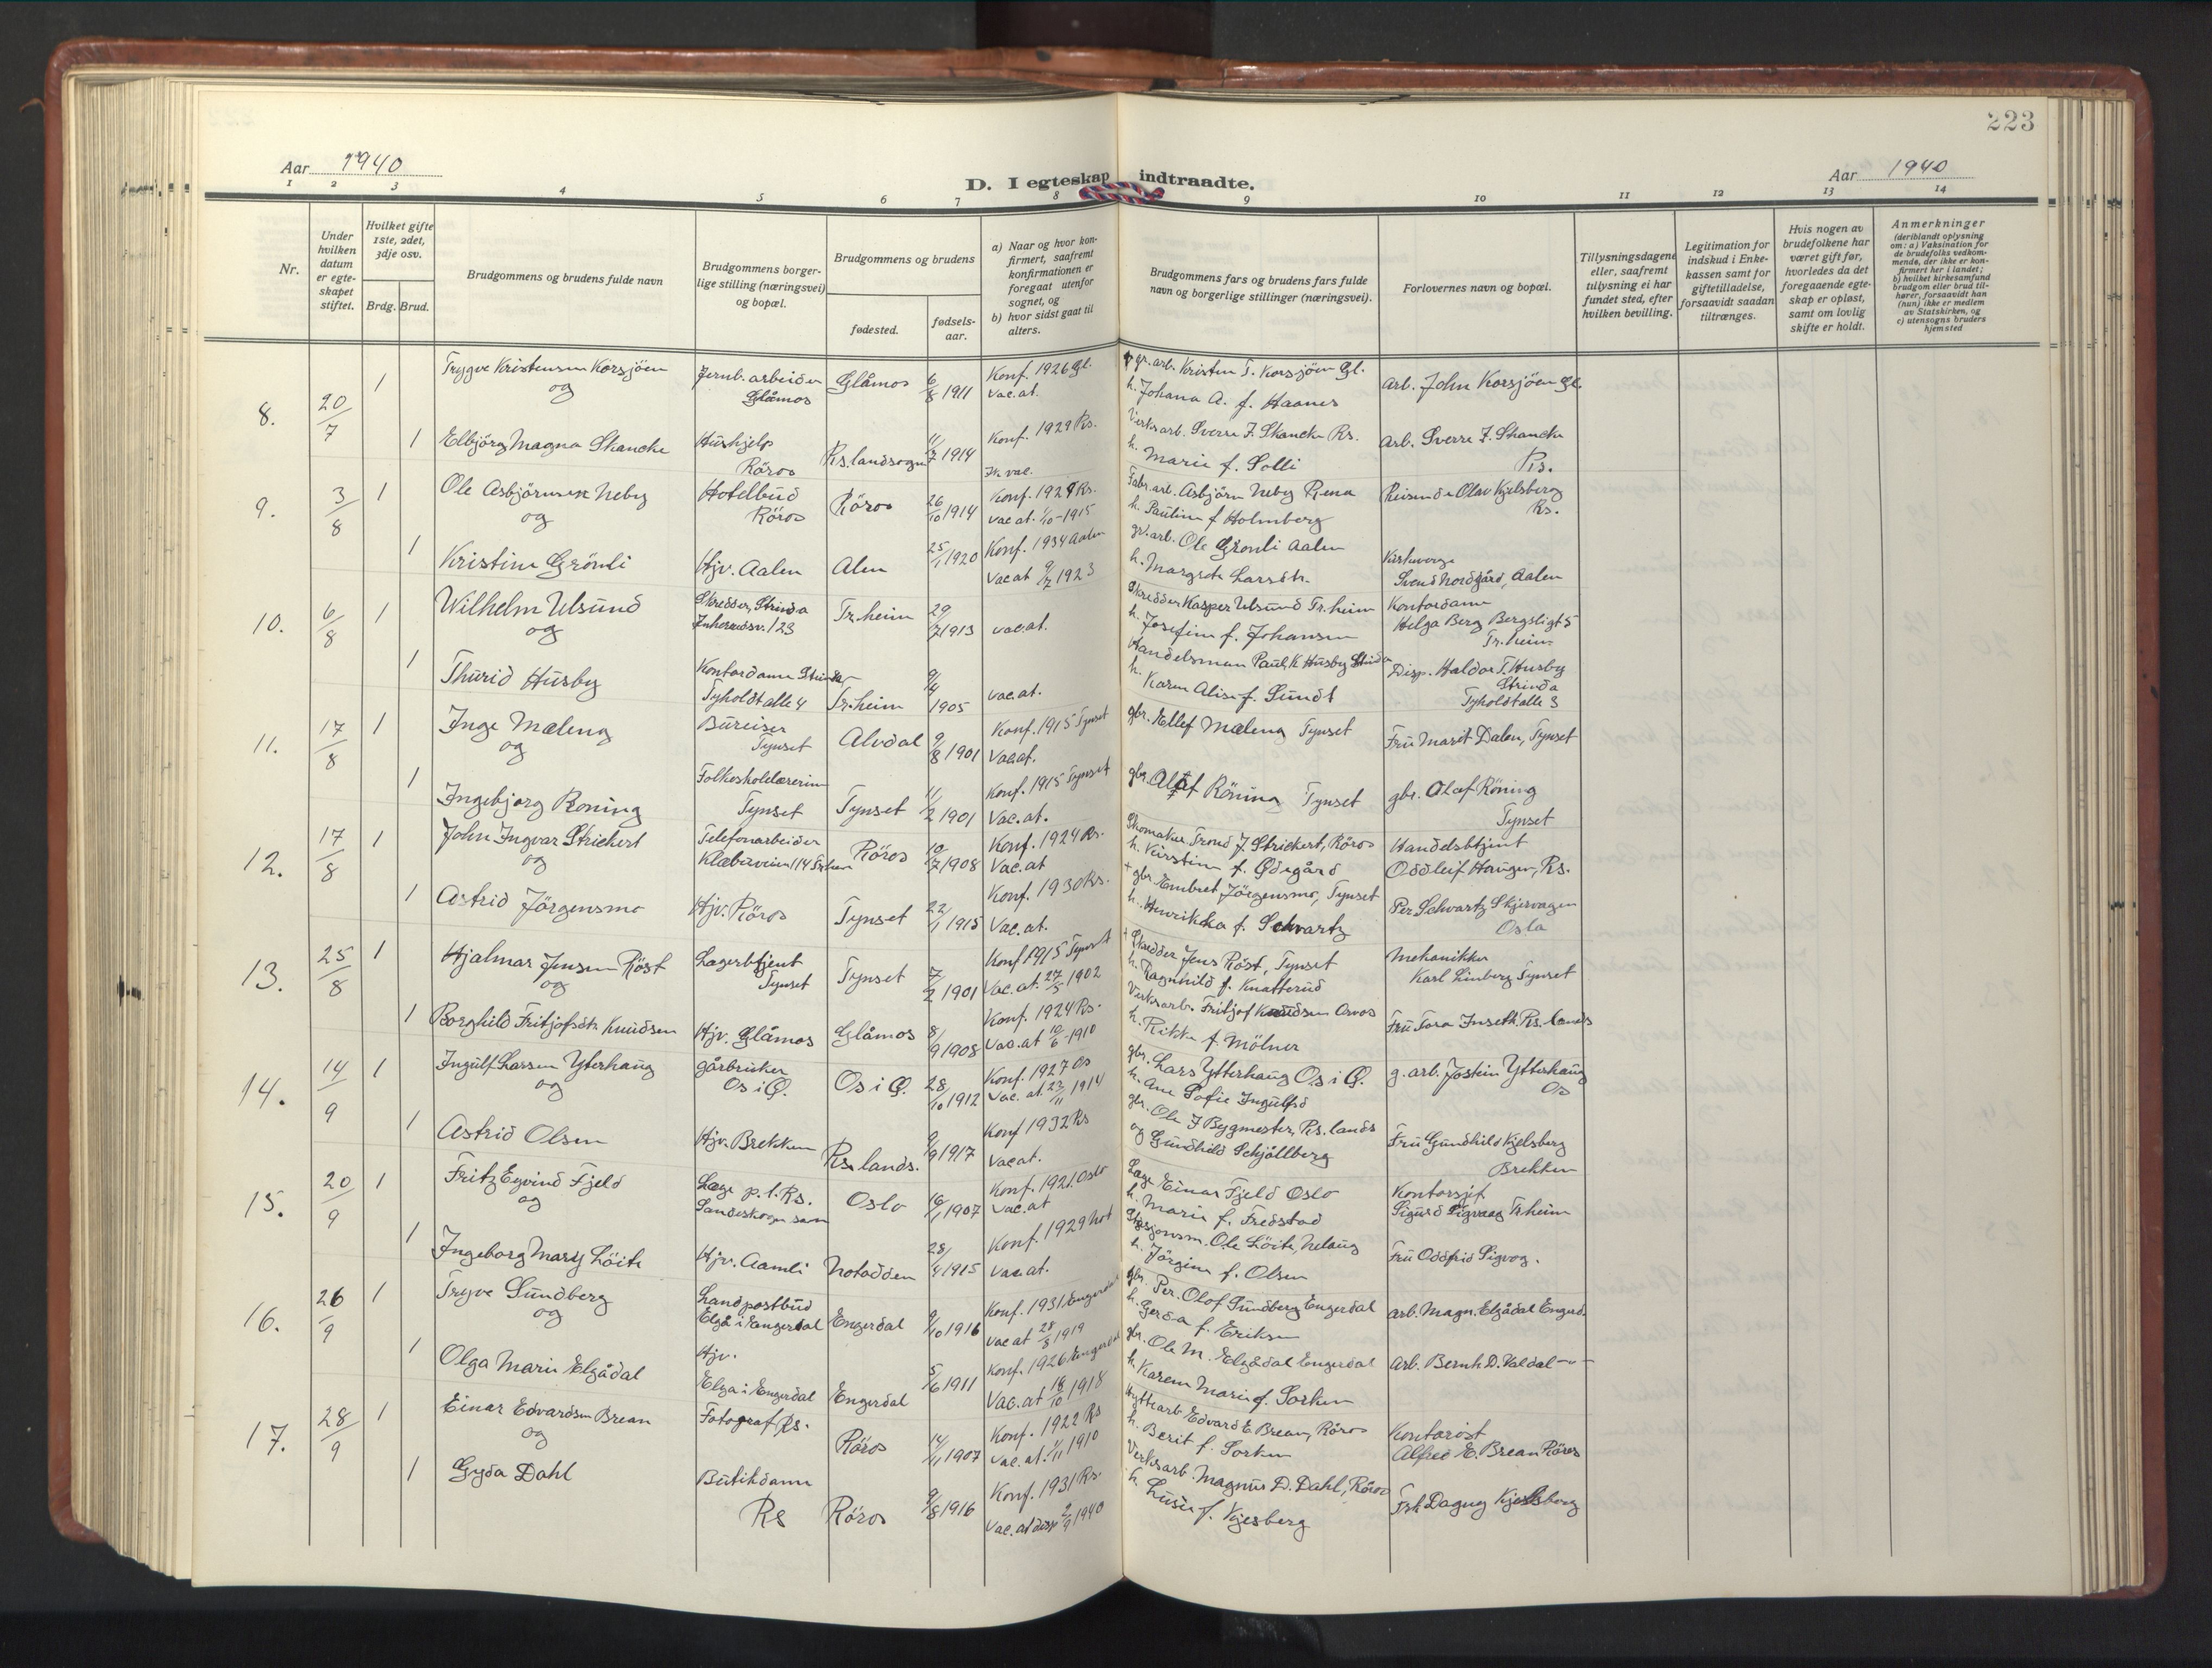 223
Aar 1940
D. I egteskap indtraadte.
Aar 1940
1 2 3 4 5 6 7 8 9 10 11 12 13 14
Nr.
Under hvilken datum er egteskapet stiftet.
Hvilket gifte 1ste, 2det, 3dje osv.
Brdg. Brud.
Brudgommens og brudens fulde navn
Brudgommens borgerlige stilling (næringsvei) og bopæl.
Brudgommens og brudens
fødested.
fødselsaar.
a) Naar og hvor konfirmert, saafremt konfirmationen er foregaat utenfor sognet, og
b) hvor sidst gaat til alters.
Brudgommens fars og brudens fars fulde navn og borgerlige stillinger (næringsvei).
Forlovernes navn og bopæl.
Tillysningsdagene eller, saafremt tillysning ei har fundet sted, efter hvilken bevilling.
Legitimation for indskud i Enkekassen samt for giftetilladelse, forsaavidt saadan tiltrænges.
Hvis nogen av brudefolkene har været gift før, hvorledes da det foregaaende egteskap er opløst, samt om lovlig skifte er holdt.
Anmerkninger
(deriblandt oplysning om: a) Vaksination for de brudefolks vedkommende, der ikke er konfirmert her i landet; b) hvilket kirkesamfund brudgom eller brud tilhører, forsaavidt han (hun) ikke er medlem av Statskirken, og c) utensogns bruders hjemsted
8. 20/7 1 Trygve Kristensen Korsjöen og Jernb. arbeider Glåmos Glåmos 6/8 1911 Konf. 1926 Gl. vac. at. gr. arb. Kristen T. Korsjöen Gl. h. Johana A. f. Haanes arb. John Korsjöen Gl.
1 Elbjörg Magna Skancke Hushjelp Röros Rs. landsogn 11/7 1914 Konf. 1929 Rs. vac. Verksarb. Sverre J. Skancke Rs. h. Marie f. Solli arb. Sverre J. Skancke Rs.
9. 3/8 1 Ole Asbjörnsen Neby og Hotelbud Röros Röros 26/10 1914 Konf. 1929 Rs. vac. at. 1/10-1915 Fabr. arb. Asbjörn Neby Rena h. Pauline f. Holmberg Reisende Olav Kjelsberg Rs.
1 Kristine Grönli Hjv. Aalen Alen 25/1 1920 Konf. 1934 Aalen Vac at 9/2 1923 gr. arb. Ole Grönli Aalen h. Margrete Larsdtr. Kirkeverge Svend Nordgård, Aalen
10. 6/8 1 Wilhelm Ulsund og Skredder, Strinda Inherredsv. 123 Tr.heim 29/7 1913 vac. at. Skredder Kasper Ulsund Tr.heim h. Josefine f. Johansen Kontordame Helga Berg Bergsligt 5 Tr.heim
1 Thurid Husby Kontordame Strinda Tyholdtalle 4 Tr.heim 9/4 1905 vac. at. Handelsman Paul K Husby Strinda h. Karen Alise f. Sundt Disp. Haldor T. Husby Strinda Tyholdtalle 3
11. 17/8 1 Inge Mæleng og Bureiser Tynset Alvdal 9/8 1901 Konf. 1915 Tynset Vac at. gbr. Ellef Mæleng Tynset Fru Marit Dalen, Tynset
1 Ingebjorg Roning Folkeskolelærerin Tynset Tynset 11/2 1901 Konf. 1915 Tynset Vac. at. gbr. Röning Tynset gbr. Olaf Röning Tynset
12. 17/8 1 John Ingvar Strickert og Telefonarbeider Klæbuveien 114 Tr.heim Röros 10/7 1908 Konf. 1924 Rs. Vac. at Skomaker Trond J. Strickert, Röros h. Kirstine f. Ødegård Handelsbtjent Oddleif Haugen, Rs.
1 Astrid Jörgensmo Hjv. Röros Tynset 22/1 1915 Konf. 1930 Rs. Vac. at. + gbr Embret Jörgensmo, Tynset h. Henrikka f. Schwartz Per Schvartz Skjervagen Oslo
13. 25/8 1 Hjalmar Jensen Röst og Lagerbtjent Tynset Tynset 7/2 1901 Konf 1915 Tynset Vac. at. 27/5 1902 + Skredder Jens Röst, Tynset h. Ragnhild f. Knatterud Mekanikker Karl Limberg Tynset
1 Borghild Fritjofsdtr Knudsen Hjv. Glåmos Glåmos 8/9 1908 Konf. 1924 Rs. vac. at 10/6-1910 Verksarb. Fritjof Knudsen Orvos h. Rikke f. Mölner Fru Tora Inseth Rs. lands
14. 14/9 1 Ingulf Larsen Ytterhaug og gårbruker Os i Ø. Os i Ø. 28/10 1912 Konf. 1927 Os Vac. at. 23/11 1914 gbr. Lars Ytterhaug Os i Ø. h. Ane Sofie Ingulfsd g. arb. Jostein Ytterhaug Os
1 Astrid Olsen Hjv. Brekken Rs. lands. 9/9 1917 Konf 1932 Rs Vac at. gbr. Ole J Bygmester, Rs. lands og Gundhild Schjöllberg Fru Gundhild Kjelsberg Brekken
15. 20/9 1 Fritz Eyvind Fjeld og Læge p.t. Rs. Landeskogen san Oslo 16/1 1907 Konf. 1921 Oslo vac. at Læge Einar Fjeld Oslo h. Marie f. Fredstad Kontorsjef Sigurd Sigvaag Tr.heim
1 Ingeborg Mary Löite Hjv. Aamli Notodden 28/4 1915 Konf. 1929 Not vac at. Stasjonsm. Ole Löite, Nelaug h. Jörgine f. Olsen Fru Oddfrid Sigvag.
16. 26/9 1 Trygve Sundberg og Landpostbud Elgå i Engerdal Engerdal 9/10 1916 Konf. 1931 Engerdal vac at 28/8 1919 gbr. Per. Olof Sundberg Engerdal h. Gerda f. Eriksen arb. Magn. Elgådal Engerd.
1 Olga Marie Elgådal Hjv. Elga i Engerdal Engerdal 5/6 1911 Konf. 1926 Engerdal Vac. at 18/10 1918 gbr. Ole M. Elgådal Engerdal h. Karen Marie f. Sorken arb. Bernh D. Valdal —"—
17. 28/9 1 Einar Edvardsen Brean og Fotograf Rs. Röros 14/11 1907 Konf. 1922 Rs vac. at. 1/11 1910 Hyttearb Edvard E Brean, Röros h. Berit f. Sorken Kontorist Alfred E. Brean Röros
1 Gyda Dahl Butikdame Rs Röros 9/8 1916 Konf. 1931 Rs. Vac. at disp 2/9 1940 Verksarb. Magnus D. Dahl, Röros h. Lusie f. Kjesberg Frk Dagny Kjelsberg